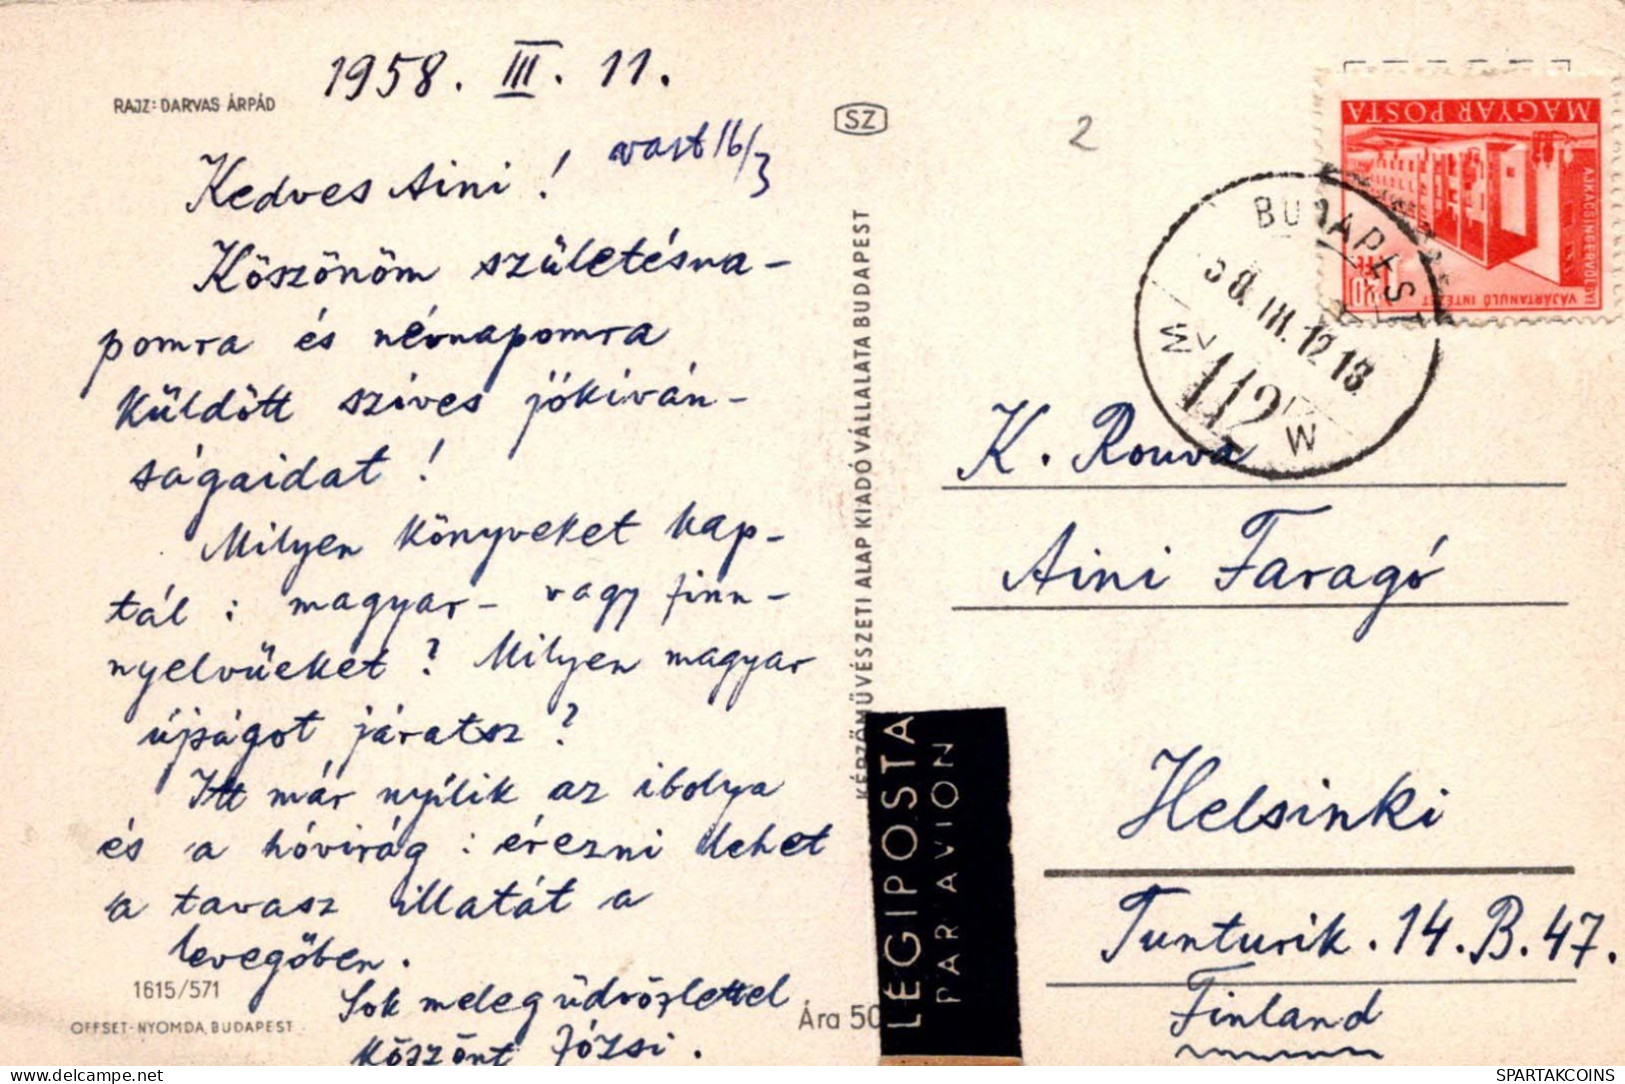 1958. III. 11.
RAJZ: DARVAS ÁRPÁD
SZ
2
vast 16/3
Kedves Aini!
Köszönöm születésna-
pomra és névnapomra
küldött szíves jókíván-
ságaidat!
Milyen könyveket kap-
tál: magyar- vagy finn-
nyelvűeket? Milyen magyar
újságot járatsz?
Itt már nyílik az ibolya
és a hóvirág: érezni lehet
a tavasz illatát a
levegőben.
Sok meleg üdvözlettel
köszönt Józsi.
1615/571
OFFSET-NYOMDA, BUDAPEST
Ára 50
KÉPZŐMŰVÉSZETI ALAP KIADÓVÁLLALATA BUDAPEST
LÉGIPOSTA
PAR AVION
MAGYAR POSTA
AJKACSINGERVÖLGYI
VÁJÁRTANULÓ INTÉZET
BUDAPEST
58.III.12 13
112
K. Rouva
Aini Faragó
Helsinki
Tunturik. 14. B. 47.
Finland
postcards.delcampe.net
SPARTAKCOINS